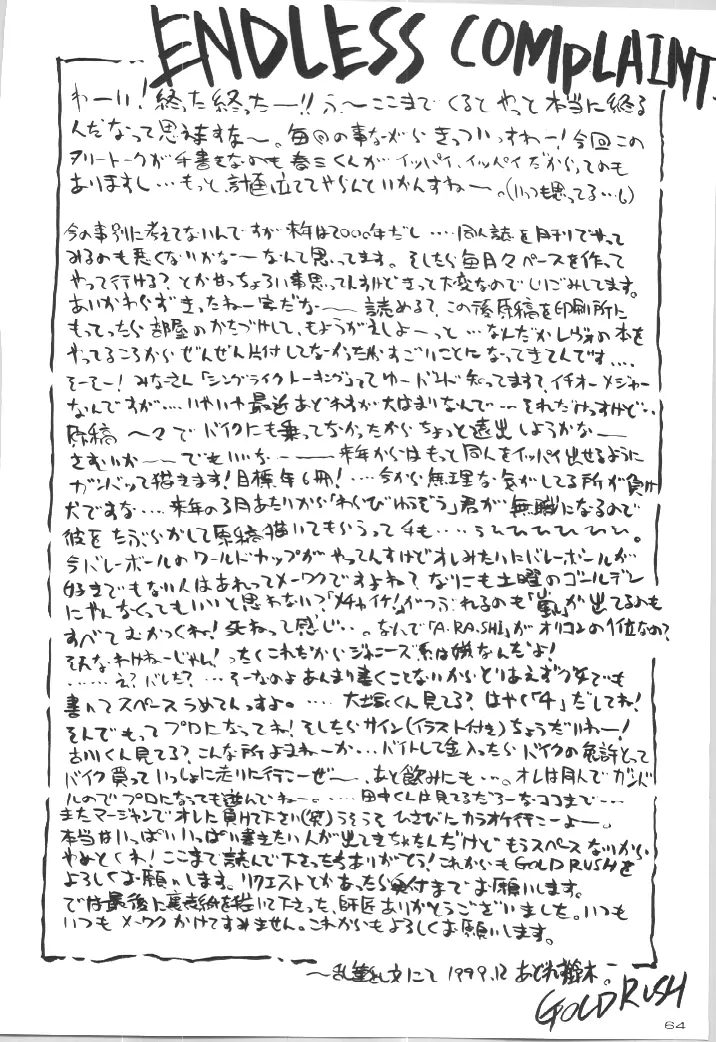 ENDLESS COMPLAINT
わーい!終った終ったー!!う〜ここまでくるとやっと本当に終る
んだなって思えますな〜。毎回の事ながらきっついっすわー!今回この
フリートークが手書きなのも春三くんがイッパイイッパイだからってのも
ありますし…もっと計画立ててやらんといかんすねー。(いつも思ってる…)
今の事別に考えてないんですが来年は2000年だし…同人誌を月刊でやって
みるのも悪くないかな〜なんて思ってます。そしたら毎月々ペースを作って
やって行ける?とか甘っちょろい事思ってんすけどきって大変なのでしりごみしてます。
あいかわらずきったねー字だな〜 読める?この後原稿を印刷所に
もってったら部屋のかたづけして、もようがえしよーっと…なんだかレヴォの本を
やってるころからぜんぜん片付してなかったからすごいことになってきてんです…
そーそー!みなさん「シングライクトーキング」ってゆーバンド知ってます?イチオーメジャー
なんですが…いやいや最近あどれすが大はまりなんで…それだけっすけど…
原稿 〜々でバイクにも乗ってなかったからちょっと遠出しようかな〜
さむいか〜でもいいな〜 来年からはもっと同人をイッパイ出せるように
ガンバって描きます!目標年6冊!…今から無理な気がしてる所が負け
犬ですな…来年の3月あたりから「わらびゆうぞう」君が無職になるので
彼をたぶらかして原稿描いてもらうって手も…うひひひひひひ。
今バレーボールのワールドカップがやってんすけどオレみたいにバレーボールが
好きでもない人はあれってメーワクですよね?なにも土曜のゴールデン
にやんなくってもいいと思わない?「メチャイケ!」がつぶれるのも「嵐」が出てるのも
すべてむかつくね!死ねって感じ…。なんで「A.RA.SHI」がオリコンの1位なの?
そんなわけねーじゃん!ったくこれだからジャニーズ系は嫌なんだよ!
……え?バレた?…そーなのよあんまり書くことないからとりあえず文字でも
書いてスペースうめてんっすよ。…大塚くん見てる?はやく「4」だしてね!
そんでもってプロになってね!そしたらサイン(イラスト付き)ちょうだいねー!
古川くん見てる?こんな所よまねーか…バイトして金入ったらバイクの免許とって
バイク買っていっしょに走りに行こーぜ〜、あと飲みにも…。オレは同人でガンバ
ルのでプロになっても遊んでねー。…田中くんは見てるだろーなココまで…
またマージャンでオレに負けて下さい(笑)うそうそ ひさびにカラオケ行こーよー。
本当はいっぱいいっぱい書きたい人が出てきちゃたんだけどもうスペースないから
やめとくね!ここまで読んで下さったちありがとう!これからもGOLD RUSHを
よろしくお願いします。リクエストとかあったら受付までお願いします。
では最後に裏表紙を描いて下さった、師匠ありがとうございました。いつも
いつもメーワクかけてすみません。これからもよろしくお願いします。
〜乱筆乱文にて 1999.12 あどれす鈴木。
GOLD RUSH
64